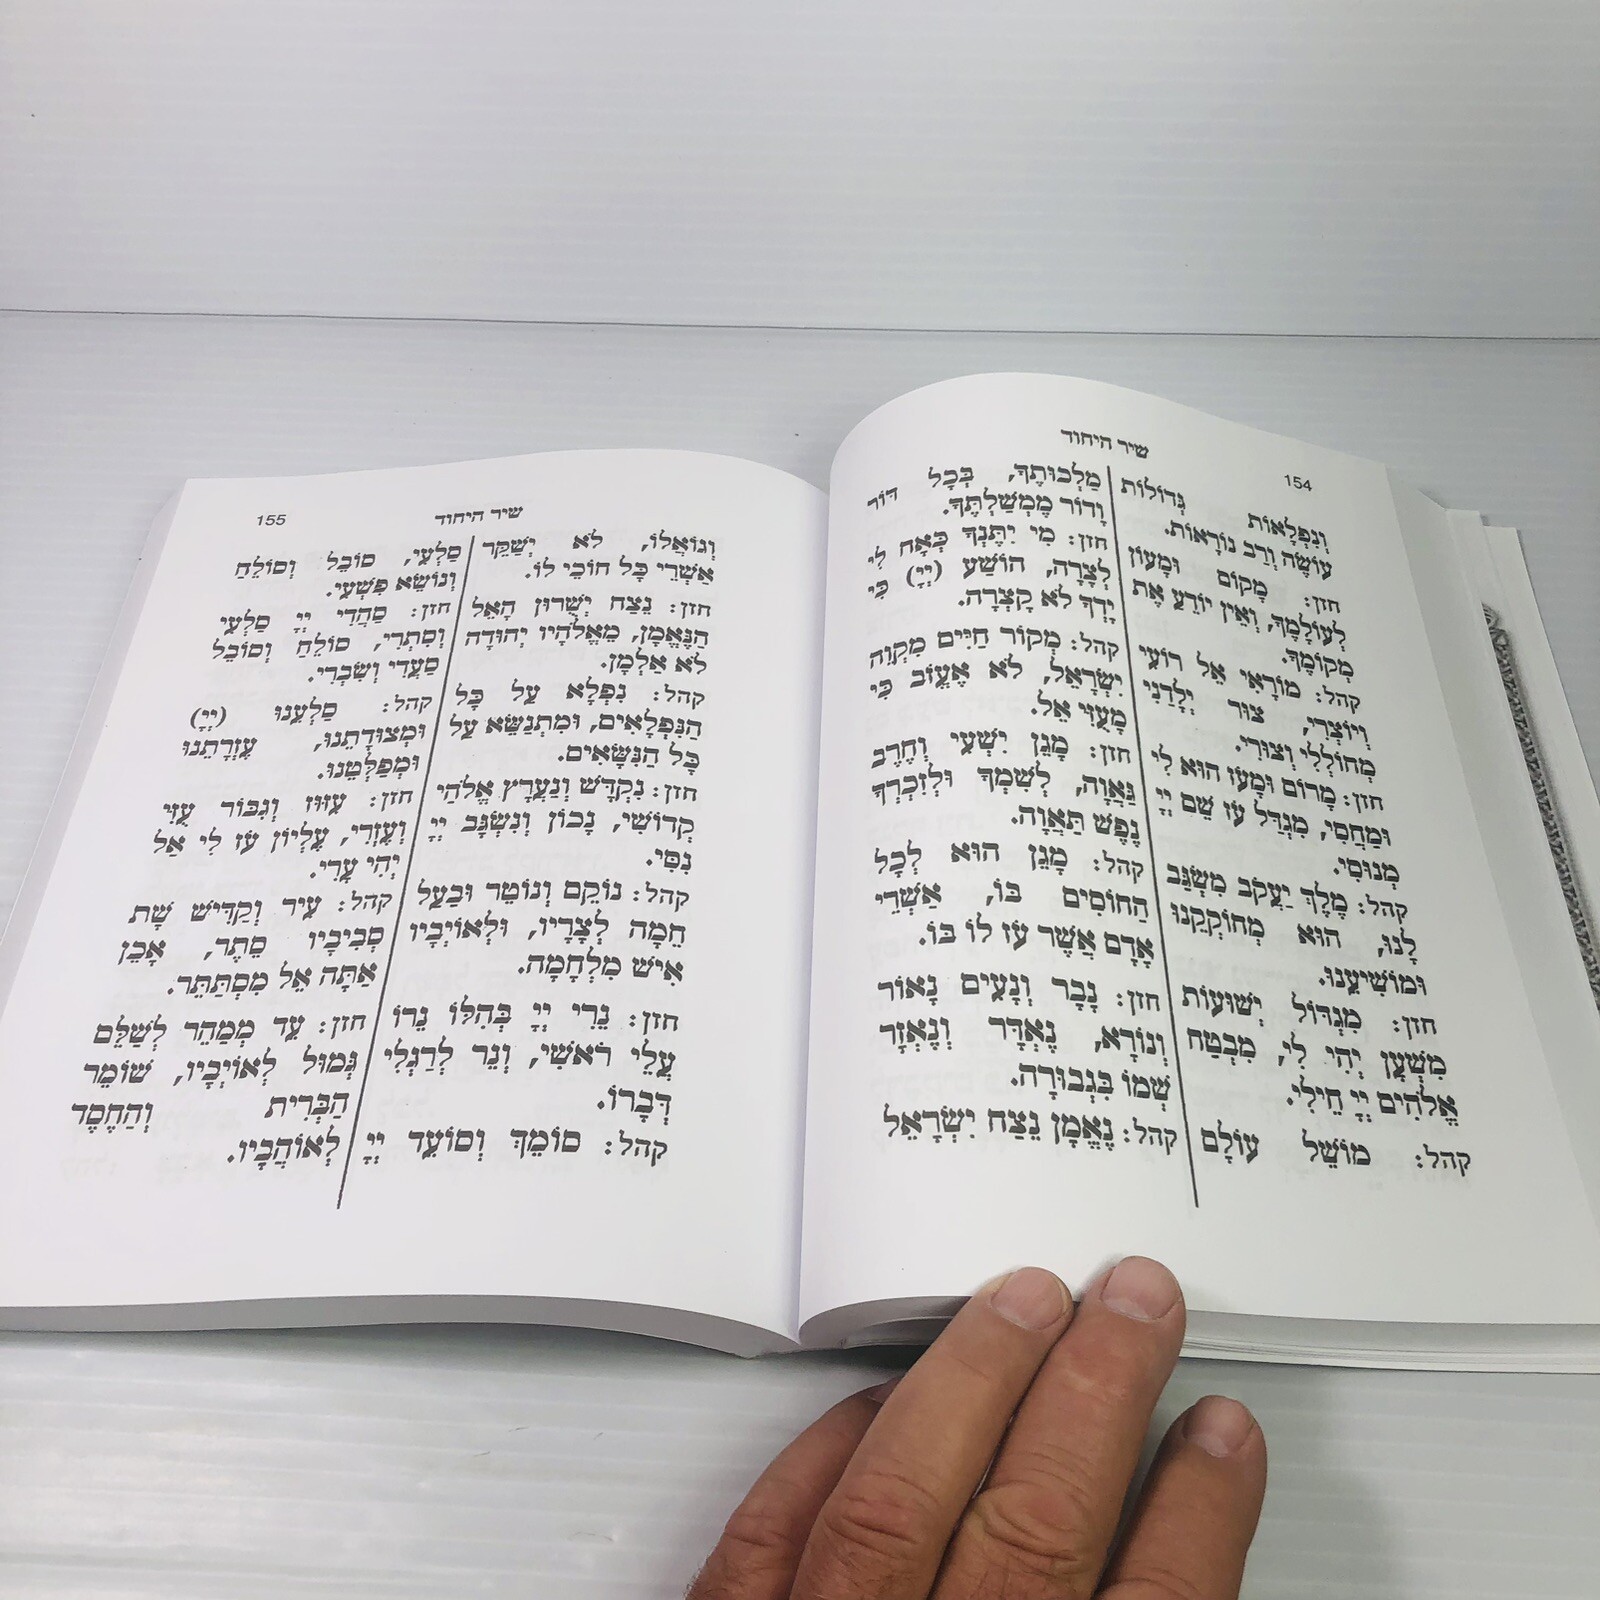 154
שיר היחוד
וְנִפְלָאוֹת גְּדוֹלוֹת
עוֹשֶׂה וְרַב נוֹרָאוֹת.
חזן: מָקוֹם וּמָעוֹן
לְעוֹלָמֶךָ, וְאֵין יוֹדֵעַ אֶת
מְקוֹמֶךָ.
קהל: מוֹרָאִי אֵל רוֹעִי
וְיוֹצְרִי, צוּר יְלָדַנִי
מְחוֹלְלִי וְצוּרִי.
חזן: מָרוֹם וּמָעֹז הוּא לִי
וּמַחְסִי, מִגְדַּל עֹז שֵׁם יְיָ
מְנוּסִי.
קהל: מֶלֶךְ יַעֲקֹב מִשְׂגָּב
לָנוּ, הוּא מְחוֹקְקֵנוּ
וּמוֹשִׁיעֵנוּ.
חזן: מִגְדּוֹל יְשׁוּעוֹת
מִשְׁעָן יְהִי לִי, מִבְטָח
אֱלֹהִים יְיָ חֵילִי.
קהל: מוֹשֵׁל עוֹלָם
מַלְכוּתֶךָ, בְּכָל דּוֹר
וָדוֹר מֶמְשַׁלְתֶּךָ.
חזן: מִי יִתֶּנְךָ כְּאָח לִי
לְצָרָה, הוֹשַׁע (יְיָ) כִּי
יָדְךָ לֹא קָצְרָה.
קהל: מְקוֹר חַיִּים מִקְוֵה
יִשְׂרָאֵל, לֹא אֶעֱזוֹב כִּי
מָעֻזִּי אֵל.
חזן: מָגֵן יִשְׁעִי וְחֶרֶב
גַּאֲוָה, לְשִׁמְךָ וּלְזִכְרְךָ
נֶפֶשׁ תַּאֲוָה.
קהל: מָגֵן הוּא לְכָל
הַחוֹסִים בּוֹ, אַשְׁרֵי
אָדָם אֲשֶׁר עֹז לוֹ בוֹ.
חזן: נָבָר וְנָעִים נָאוֹר
וְנוֹרָא, נֶאְדָּר וְנֶאְזָר
שְׁמוֹ בִּגְבוּרָה.
קהל: נֶאֱמָן נֵצַח יִשְׂרָאֵל
155
שיר היחוד
וְגוֹאֲלוֹ, לֹא יְשַׁקֵּר
אַשְׁרֵי כָּל חוֹכֵי לוֹ.
חזן: נֵצַח יְשֻׁרוּן הָאֵל
הַנֶּאֱמָן, מֵאֱלֹהָיו יְהוּדָה
לֹא אַלְמָן.
קהל: נִפְלָא עַל כָּל
הַנִּפְלָאִים, וּמִתְנַשֵּׂא עַל
כָּל הַנִּשָּׂאִים.
חזן: נִקְדָּשׁ וְנַעֲרָץ אֱלֹהַי
קְדוֹשִׁי, נָכוֹן וְנִשְׂגָּב יְיָ
נִסִּי.
קהל: נוֹקֵם וְנוֹטֵר וּבַעַל
חֵמָה לְצָרָיו, וּלְאוֹיְבָיו
אִישׁ מִלְחָמָה.
חזן: נֵרִי יְיָ בְּהִלּוֹ נֵרוֹ
עֲלֵי רֹאשִׁי, וְנֵר לְרַגְלִי
דְּבָרוֹ.
קהל: סוֹמֵךְ וְסוֹעֵד יְיָ
סַלְעִי, סוֹבֵל וְסוֹלֵחַ
וְנוֹשֵׂא פִּשְׁעִי.
חזן: סַהֲדִי יְיָ סַלְעִי
וְסִתְרִי, סוֹלֵחַ וְסוֹבֵל
סַעֲדִי וְשִׂבְרִי.
קהל: סַלְעֵנוּ (יְיָ)
וּמְצוּדָתֵנוּ, עֶזְרָתֵנוּ
וּמְפַלְּטֵנוּ.
חזן: עִזּוּז וְגִבּוֹר עֻזִּי
וְעֶזְרִי, עֶלְיוֹן עֹז לִי אַל
יְהִי עָרִי.
קהל: עִיר וְקַדִּישׁ שָׁת
סְבִיבָיו סֵתֶר, אָכֵן
אַתָּה אֵל מִסְתַּתֵּר.
חזן: עֵד מְמַהֵר לְשַׁלֵּם
גְּמוּל לְאוֹיְבָיו, שׁוֹמֵר
הַבְּרִית וְהַחֶסֶד
לְאוֹהֲבָיו.